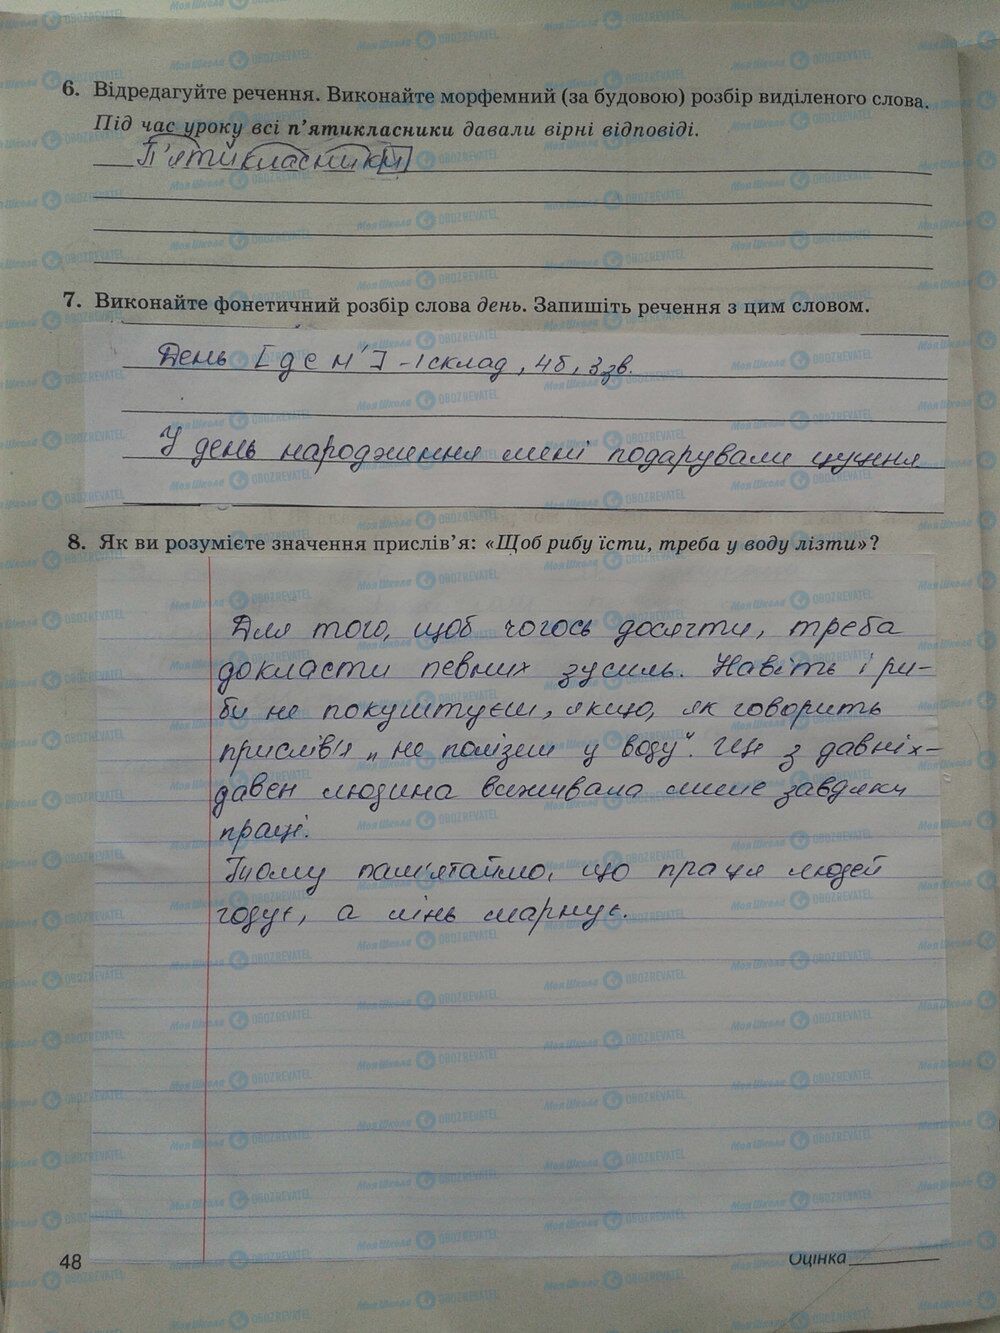 6. Відредагуйте речення. Виконайте морфемний (за будовою) розбір виділеного слова.
Під час уроку всі п’ятикласники давали вірні відповіді.
П'ятикласники
7. Виконайте фонетичний розбір слова день. Запишіть речення з цим словом.
День [д е н'] - 1 склад, 4б, 3 зв.
У день народження мені подарували цуценя
8. Як ви розумієте значення прислів’я: «Щоб рибу їсти, треба у воду лізти»?
Для того, щоб чогось досягти, треба
докласти певних зусиль. Навіть і ри-
би не покуштуєш, якщо, як говорить
прислів'я „не полізеш у воду". Ще з давніх-
давен людина виживала лише завдяки
праці.
Тому пам'ятаймо, що праця людей
годує, а лінь марнує.
48
Оцінка